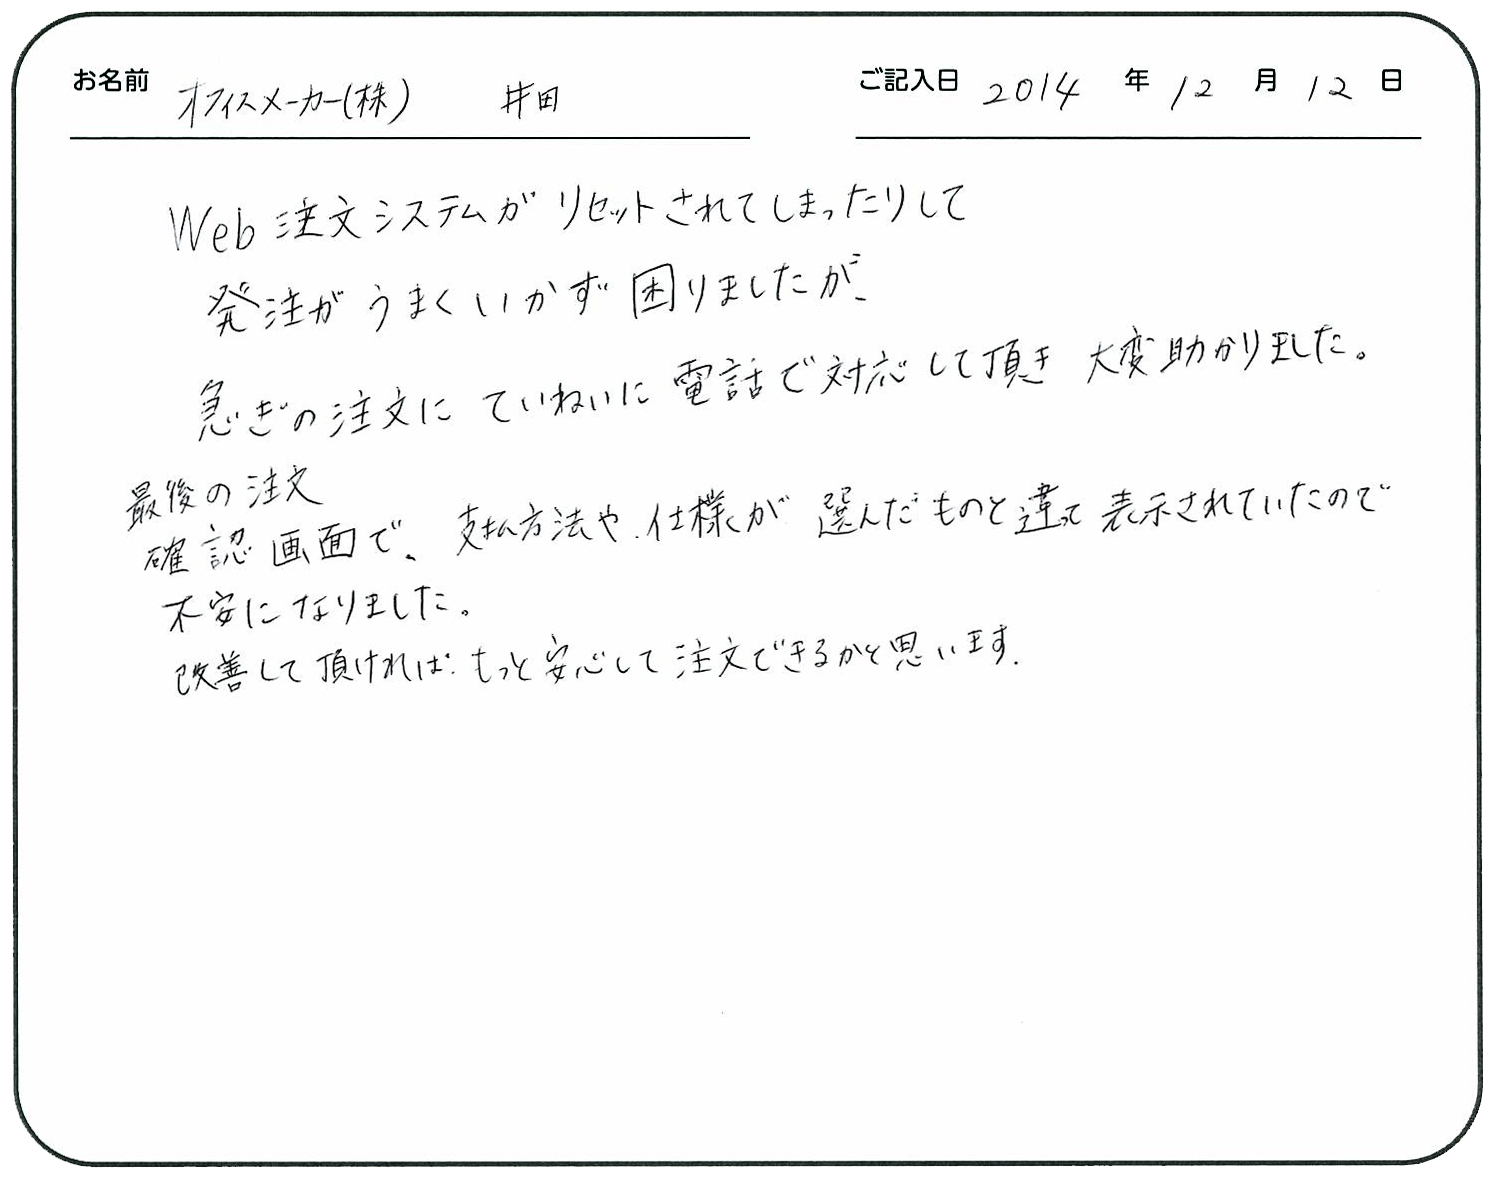 お名前 オフィスメーカー(株) 井田 ご記入日 2014 年 12 月 12 日
Web注文システムがリセットされてしまったりして
発注がうまくいかず困りましたが、
急ぎの注文にていねいに電話で対応して頂き 大変助かりました。
最後の注文
確認画面で、支払方法や、仕様が 選んだものと違って表示されていたので
不安になりました。
改善して頂ければ、もっと安心して注文できるかと思います.